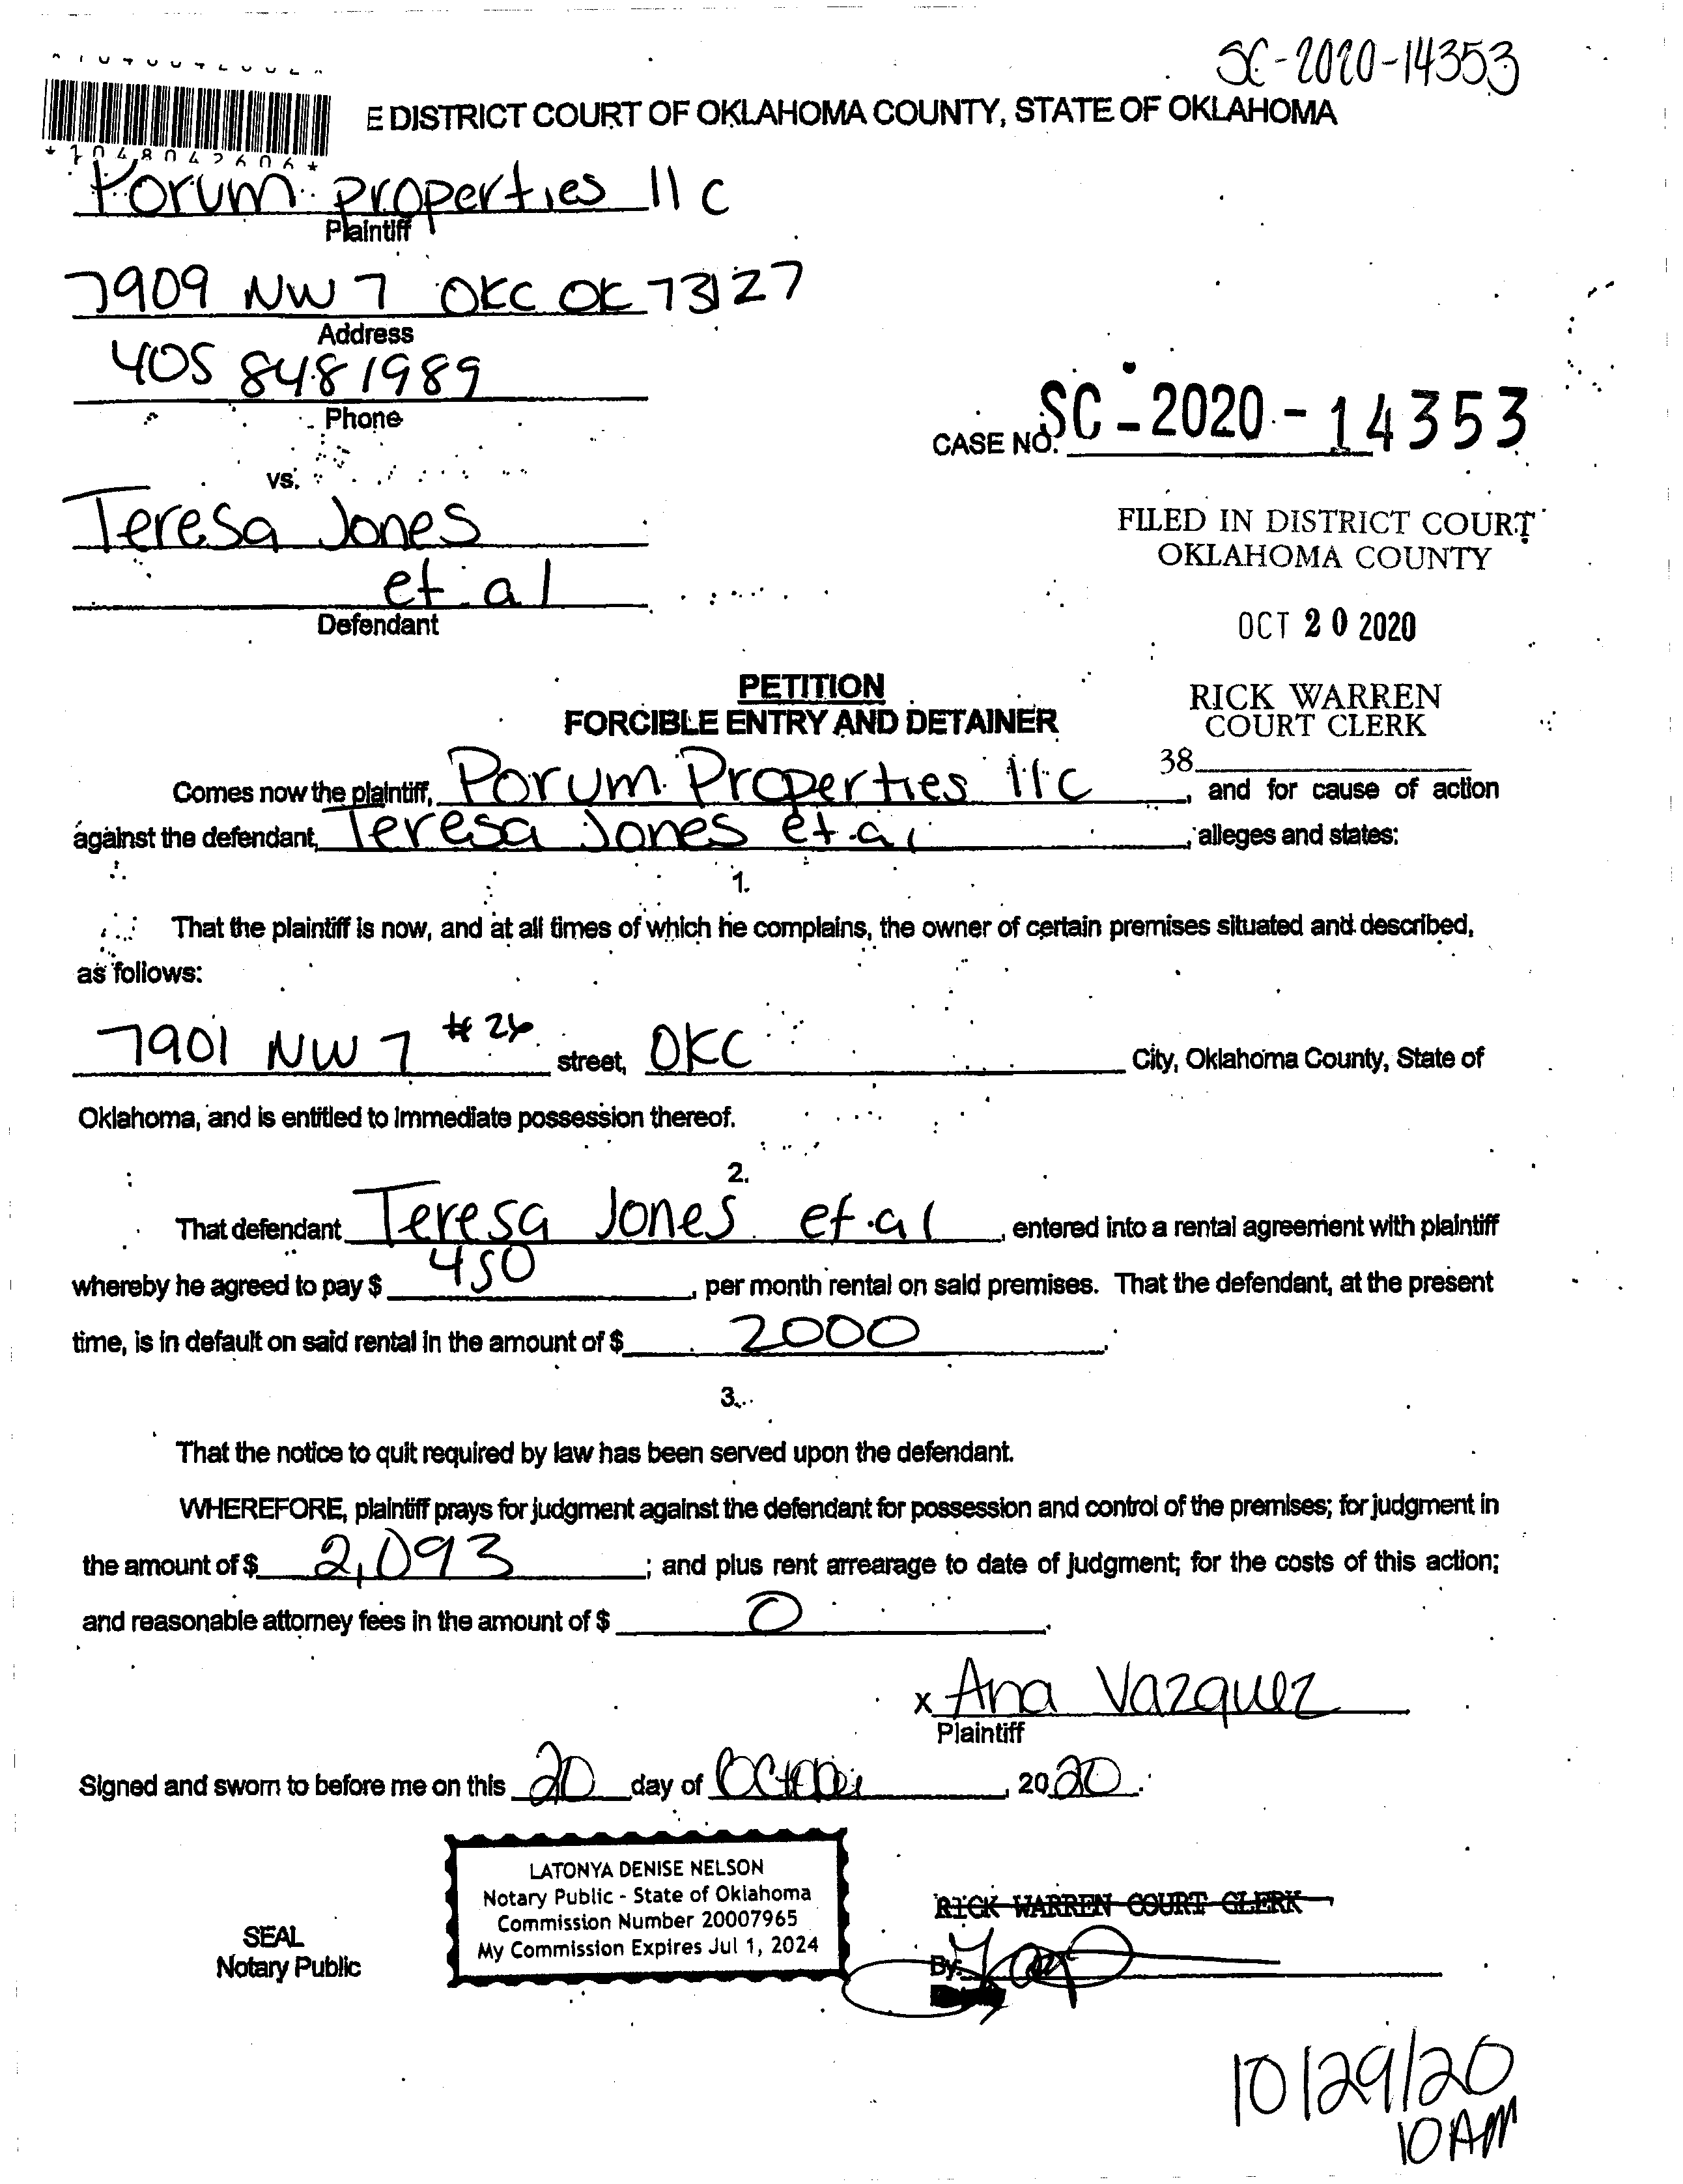 SC-2020-14353
E DISTRICT COURT OF OKLAHOMA COUNTY, STATE OF OKLAHOMA
*1048042606*
Porum properties llc
Plaintiff
7909 NW 7 OKC OK 73127
Address
405 848 1989
Phone
CASE NO. SC-2020-14353
vs.
Teresa Jones
et.al
Defendant
FILED IN DISTRICT COURT
OKLAHOMA COUNTY
OCT 20 2020
PETITION
FORCIBLE ENTRY AND DETAINER
RICK WARREN
COURT CLERK
38
Comes now the plaintiff, Porum Properties llc, and for cause of action
against the defendant, Teresa Jones et.al, alleges and states:
1.
That the plaintiff is now, and at all times of which he complains, the owner of certain premises situated and described,
as follows:
7901 NW 7 #26 street, OKC City, Oklahoma County, State of
Oklahoma, and is entitled to immediate possession thereof.
2.
That defendant Teresa Jones et.al, entered into a rental agreement with plaintiff
whereby he agreed to pay $ 450, per month rental on said premises. That the defendant, at the present
time, is in default on said rental in the amount of $ 2000.
3.
That the notice to quit required by law has been served upon the defendant.
WHEREFORE, plaintiff prays for judgment against the defendant for possession and control of the premises; for judgment in
the amount of $ 2,093; and plus rent arrearage to date of judgment; for the costs of this action;
and reasonable attorney fees in the amount of $ 0.
x Ana Vazquez
Plaintiff
Signed and sworn to before me on this 20 day of October, 2020.
LATONYA DENISE NELSON
Notary Public - State of Oklahoma
Commission Number 20007965
My Commission Expires Jul 1, 2024
SEAL
Notary Public
RICK WARREN COURT CLERK
By:
10/29/20
10AM